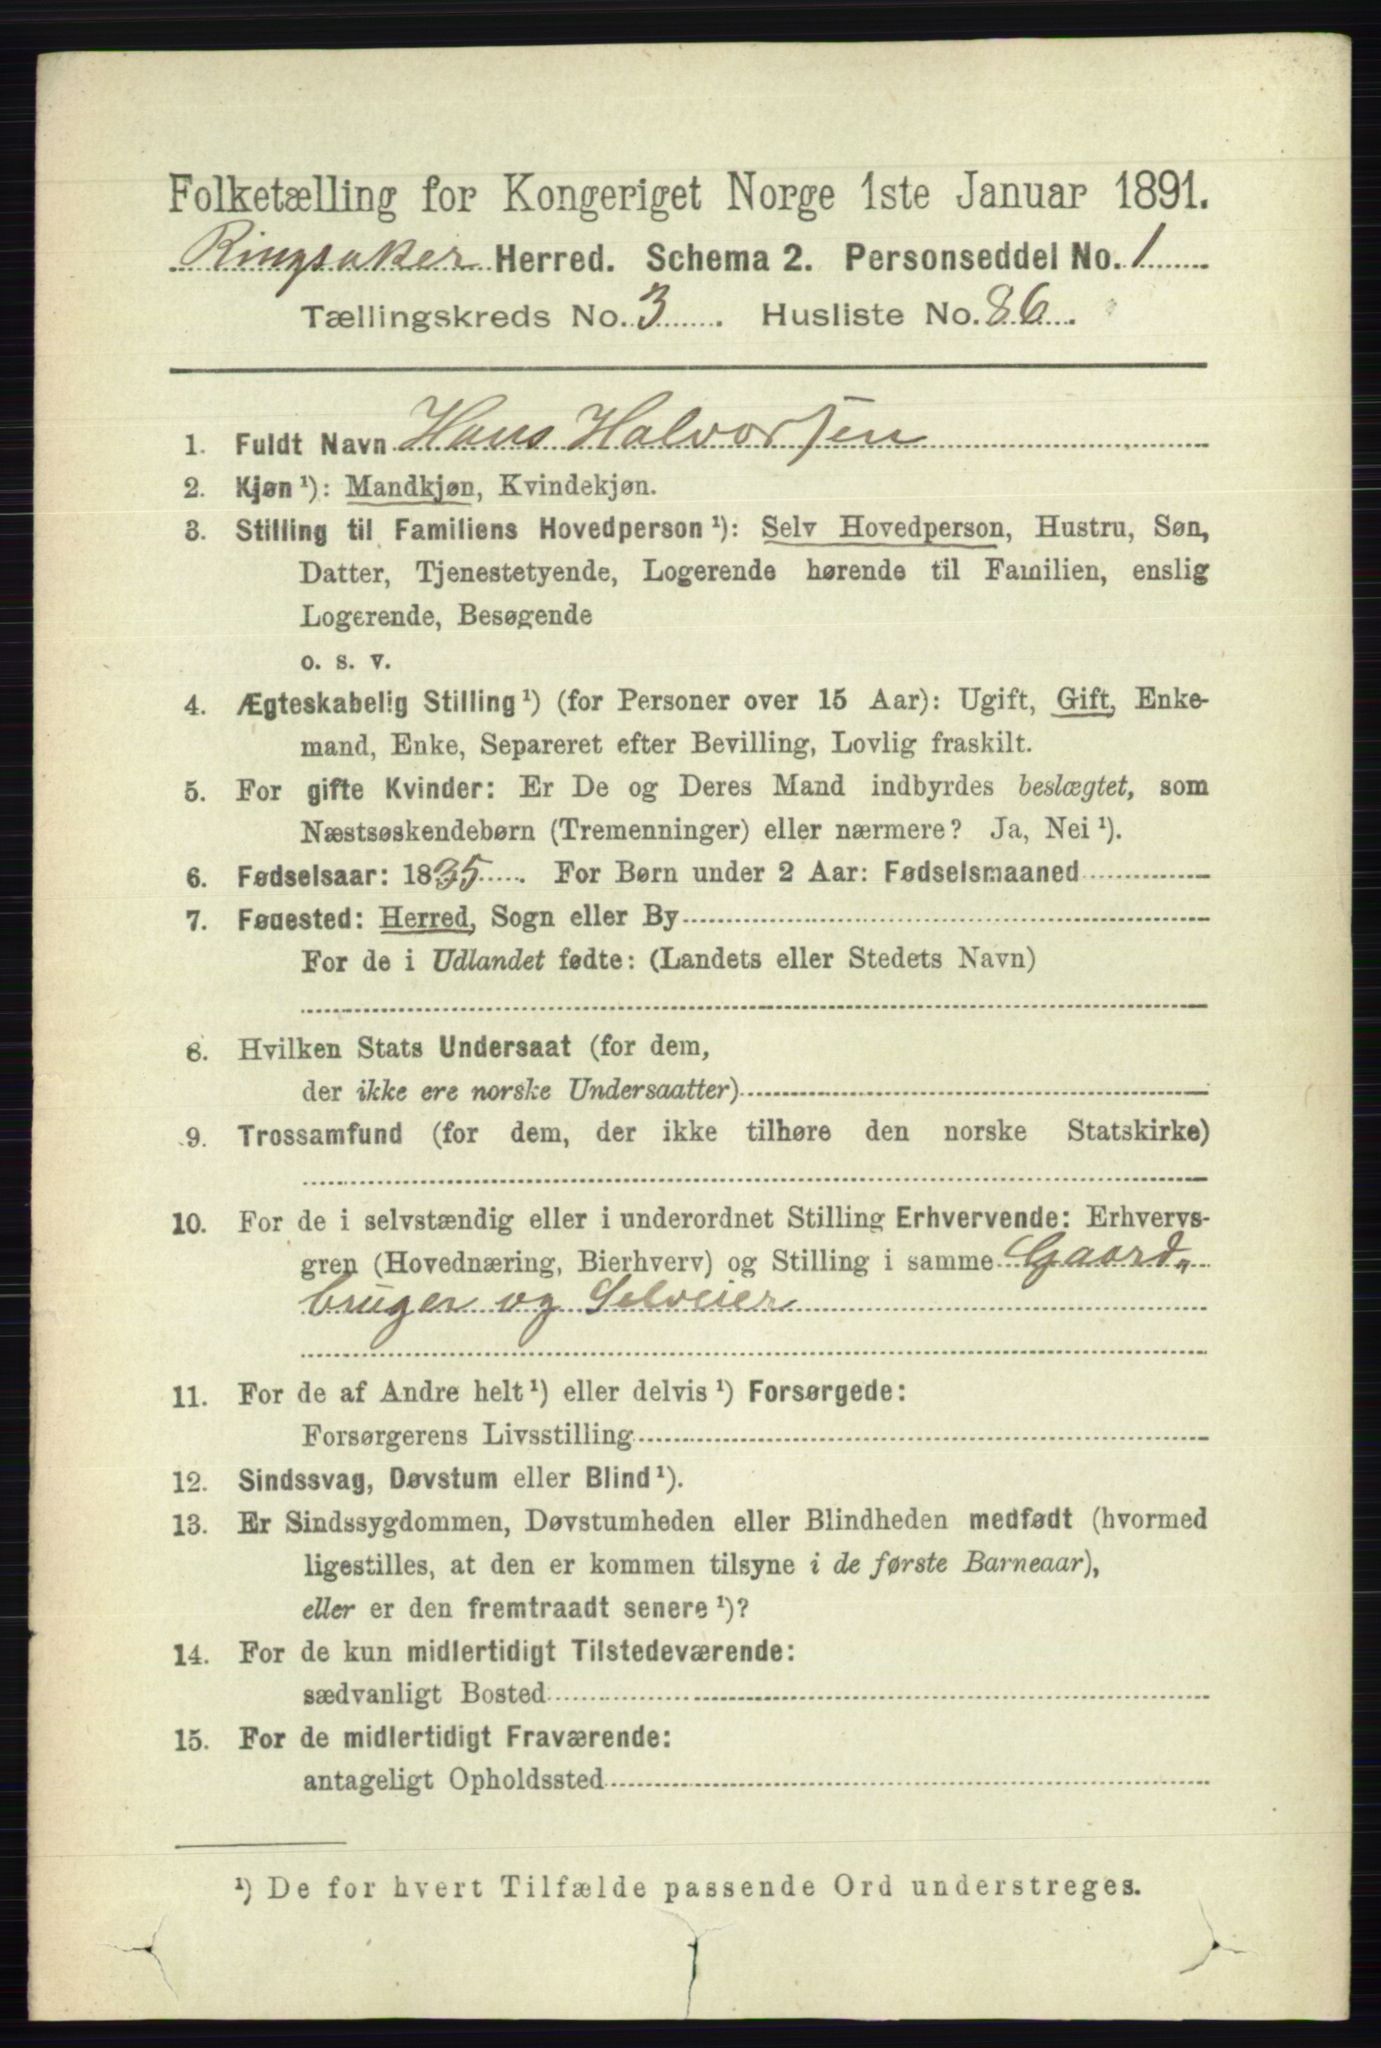 Folketælling for Kongeriget Norge 1ste Januar 1891.
Ringsaker Herred. Schema 2. Personseddel No. 1
Tællingskreds No. 3. Husliste No. 86.
1. Fuldt Navn Hans Halvorsen
2. Kjøn ¹): Mandkjøn, Kvindekjøn.
3. Stilling til Familiens Hovedperson ¹): Selv Hovedperson, Hustru, Søn,
Datter, Tjenestetyende, Logerende hørende til Familien, enslig
Logerende, Besøgende
o. s. v.
4. Ægteskabelig Stilling ¹) (for Personer over 15 Aar): Ugift, Gift, Enke-
mand, Enke, Separeret efter Bevilling, Lovlig fraskilt.
5. For gifte Kvinder: Er De og Deres Mand indbyrdes beslægtet, som
Næstsøskendebørn (Tremenninger) eller nærmere? Ja, Nei ¹).
6. Fødselsaar: 1835. For Børn under 2 Aar: Fødselsmaaned
7. Fødested: Herred, Sogn eller By
For de i Udlandet fødte: (Landets eller Stedets Navn)
8. Hvilken Stats Undersaat (for dem,
der ikke ere norske Undersaatter)
9. Trossamfund (for dem, der ikke tilhøre den norske Statskirke)
10. For de i selvstændig eller i underordnet Stilling Erhvervende: Erhvervs-
gren (Hovednæring, Bierhverv) og Stilling i samme Gaard„
bruger og Selveier
11. For de af Andre helt ¹) eller delvis ¹) Forsørgede:
Forsørgerens Livsstilling
12. Sindssvag, Døvstum eller Blind ¹).
13. Er Sindssygdommen, Døvstumheden eller Blindheden medfødt (hvormed
ligestilles, at den er kommen tilsyne i de første Barneaar),
eller er den fremtraadt senere ¹)?
14. For de kun midlertidigt Tilstedeværende:
sædvanligt Bosted
15. For de midlertidigt Fraværende:
antageligt Opholdssted
¹) De for hvert Tilfælde passende Ord understreges.